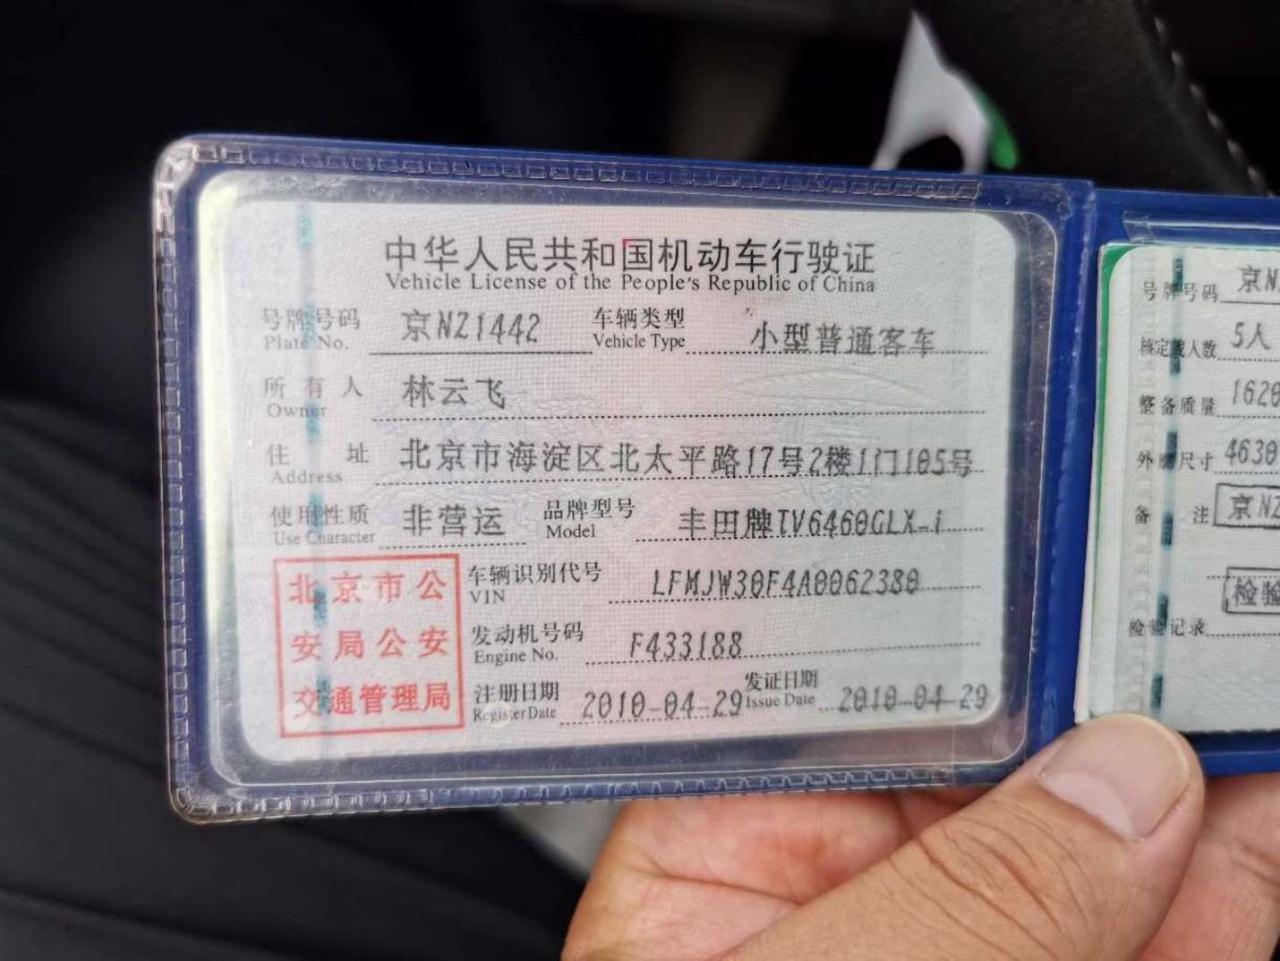 中华人民共和国机动车行驶证
Vehicle License of the People's Republic of China
号牌号码 京NZ1442 车辆类型 小型普通客车
Plate No. Vehicle Type
所有人 林云飞
Owner
住址 北京市海淀区北太平路17号2楼1门105号
Address
使用性质 非营运 品牌型号 丰田牌TV6460GLX-i
Use Character Model
北京市公
安局公安
交通管理局
车辆识别代号 LFMJW30F4A0062380
VIN
发动机号码 F433188
Engine No.
注册日期 2010-04-29 发证日期 2010-04-29
Register Date Issue Date
号牌号码 京N
核定载人数 5人
整备质量 1620
外廓尺寸 4630
备注 京NZ
检验
检验记录